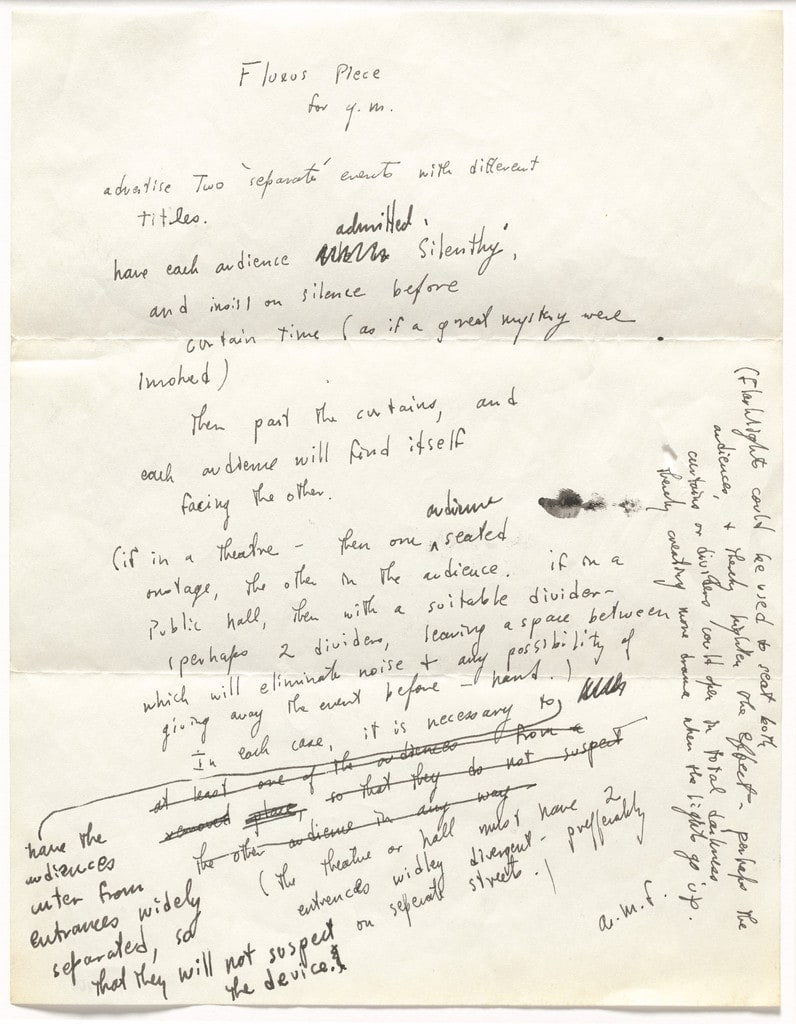 Fluxus Piece
for y.m.
advertise Two 'separate' events with different
titles.
admitted
have each audience 'Silently',
and insist on silence before
curtain time (as if a great mystery were
involved)
Then part the curtains, and
each audience will find itself
facing the other.
audience
(if in a theatre - then one seated
onstage, the other in the audience. if in a
Public hall, then with a suitable divider -
(perhaps 2 dividers, leaving a space between
which will eliminate noise + any possibility of
giving away the event before-hand.)
In each case, it is necessary to
at least one of the audiences from a
removed place, so that they do not suspect
the other audience in any way
(The theatre or hall must have 2
entrences widley divergent - prefferably
on seperate streets.)
have the
audiences
enter from
entrances widely
separated, so
that they will not suspect
the device.
a.m.f.
(Flashlights could be used to seat both
audiences, + thereby highten the effect - perhaps the
curtains or dividers could open in total darkness
thereby creating more drama when the lights go up.